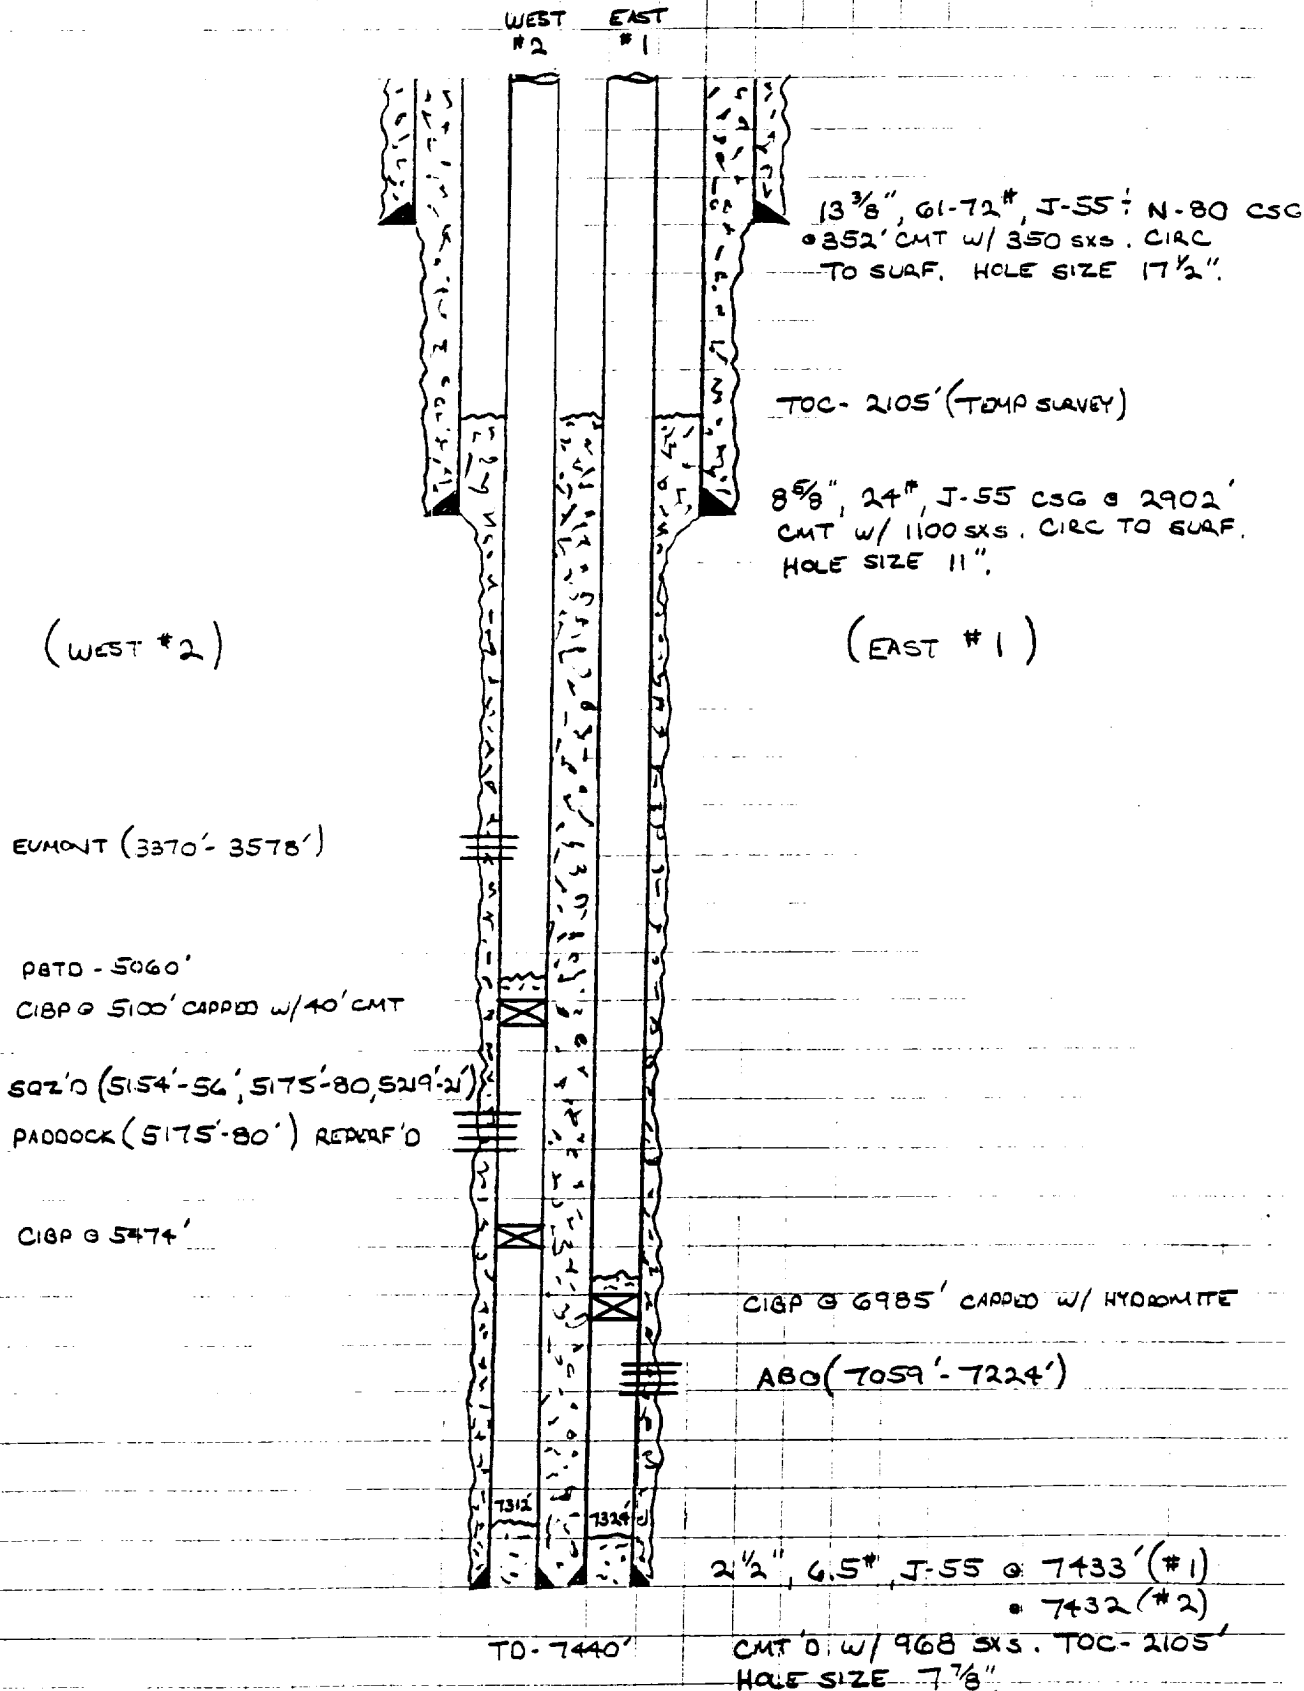 WEST EAST
#2 #1
13 3/8", 61-72#, J-55 & N-80 CSG
@ 352' CMT W/ 350 SXS. CIRC
TO SURF. HOLE SIZE 17 1/2".
TOC- 2105' (TEMP SURVEY)
8 5/8", 24#, J-55 CSG @ 2902'
CMT W/ 1100 SXS. CIRC TO SURF.
HOLE SIZE 11".
(WEST #2)
(EAST #1)
EUMONT (3370'- 3578')
PBTD - 5060'
CIBP @ 5100' CAPPED W/ 40' CMT
SQZ'D (5154'-56', 5175'-80, 5219'-21')
PADDOCK (5175'-80') REPERF'D
CIBP @ 5474'
CIBP @ 6985' CAPPED W/ HYDROMITE
ABO (7059'-7224')
7312' 7324'
2 1/2", 6.5#, J-55 @ 7433' (#1)
@ 7432 (#2)
TD- 7440'
CMT'D W/ 968 SXS. TOC- 2105'
HOLE SIZE 7 7/8"